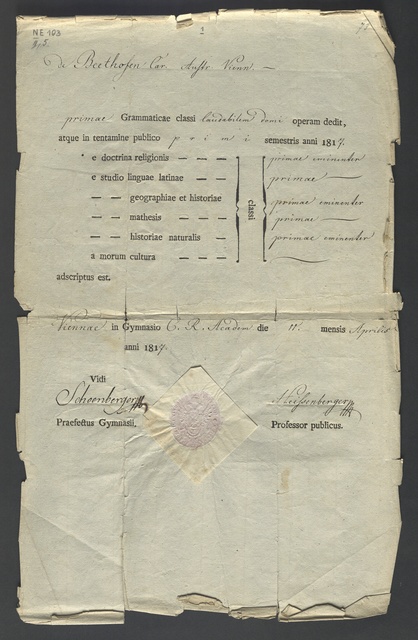 NE 103
II, 5.
1
de Beethofen Car. Austr. Vienn. —
primae Grammaticae classi laudabilem domi operam dedit,
atque in tentamine publico primi semestris anni 1817.
e doctrina religionis — — — primae eminenter
e studio linguae latinae — — — primae —
— — geographiae et historiae primae eminenter
— — mathesis — — — primae —
— — historiae naturalis — primae eminenter
a morum cultura — — —
classi
adscriptus est.
Viennae in Gymnasio C. R. Academ die 11. mensis Aprilis
anni 1817.
Vidi
Schoenberger
Praefectus Gymnasii. Professor publicus.